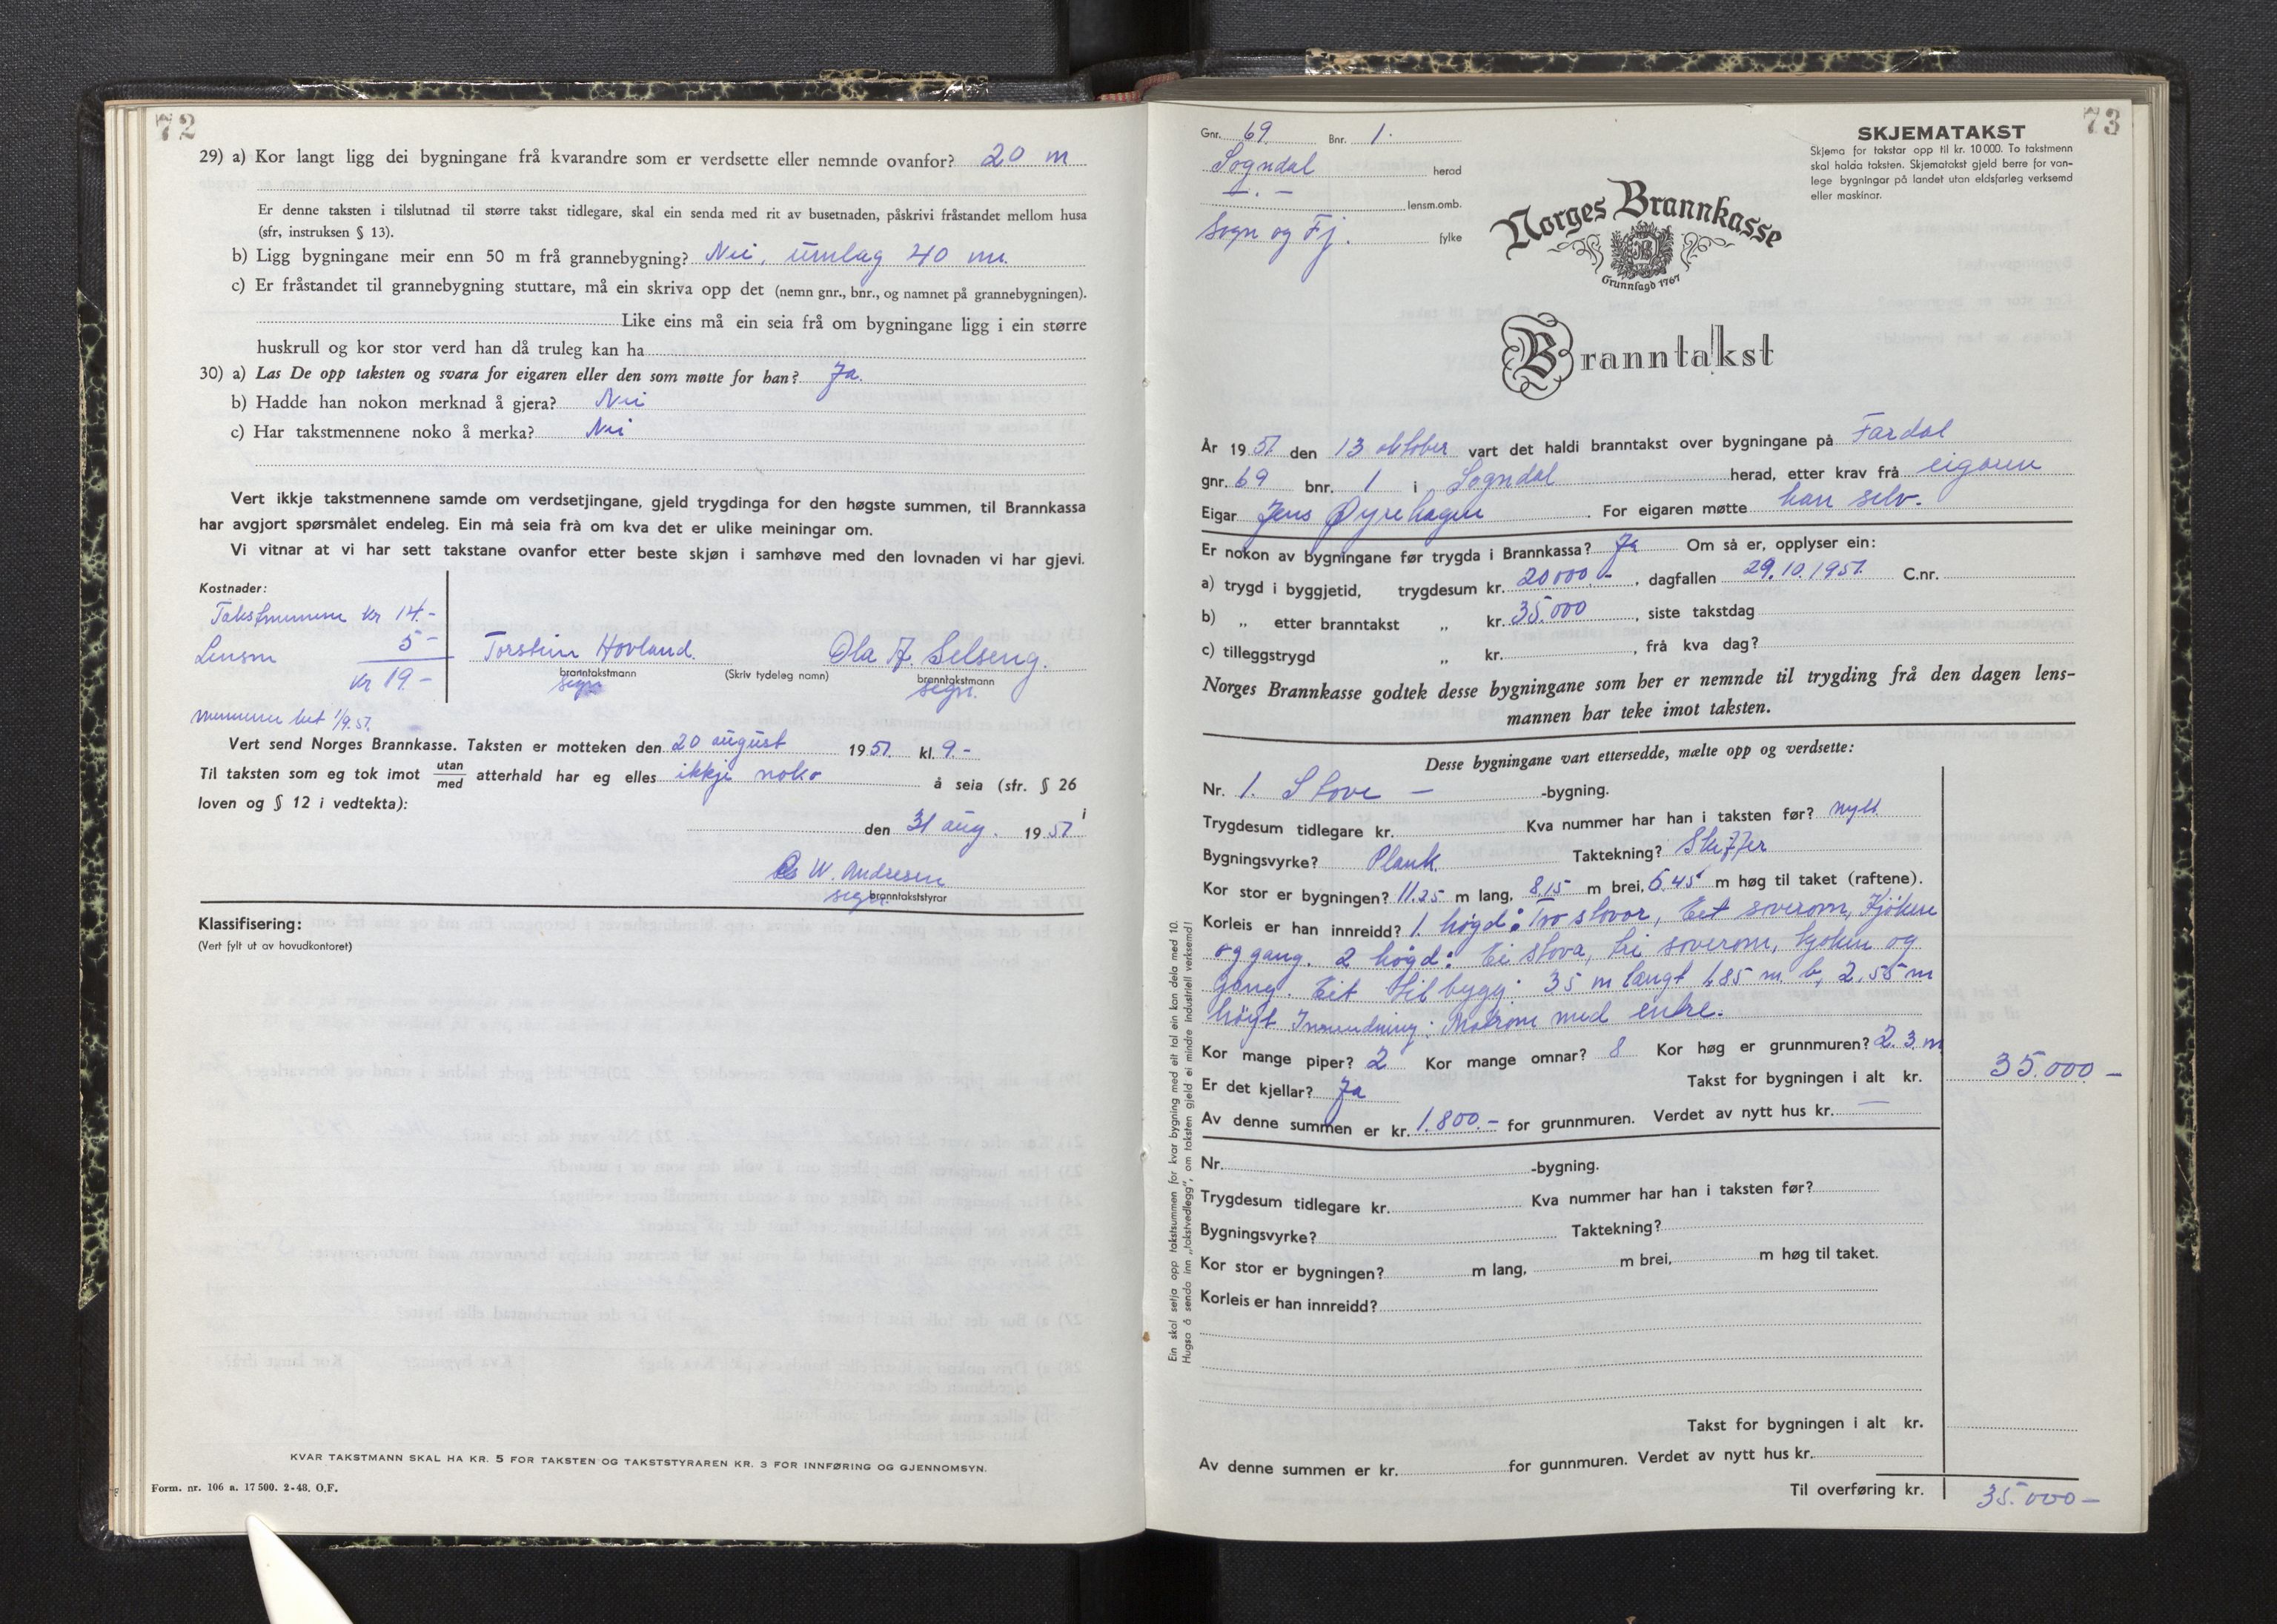 72
29) a) Kor langt ligg dei bygningane frå kvarandre som er verdsette eller nemnde ovanfor? 20 m
Er denne taksten i tilslutnad til større takst tidlegare, skal ein senda med rit av busetnaden, påskrivi fråstandet mellom husa
(sfr, instruksen § 13).
b) Ligg bygningane meir enn 50 m frå grannebygning? Nei, umlag 40 m.
c) Er fråstandet til grannebygning stuttare, må ein skriva opp det (nemn gnr., bnr., og namnet på grannebygningen).
Like eins må ein seia frå om bygningane ligg i ein større
huskrull og kor stor verd han då truleg kan ha
30) a) Las De opp taksten og svara for eigaren eller den som møtte for han? Ja.
b) Hadde han nokon merknad å gjera? Nei
c) Har takstmennene noko å merka? Nei
Vert ikkje takstmennene samde om verdsetjingane, gjeld trygdinga for den høgste summen, til Brannkassa
har avgjort spørsmålet endeleg. Ein må seia frå om kva det er ulike meiningar om.
Vi vitnar at vi har sett takstane ovanfor etter beste skjøn i samhøve med den lovnaden vi har gjevi.
Kostnader:
Takstmennene kr 14.-
Lensm 5-
kr 19.-
Torstein Hovland. Ola A. Selseng.
branntakstmann (Skriv tydeleg namn) branntakstmann
segn. segn.
mennene bet 1/9.51.
Vert send Norges Brannkasse. Taksten er motteken den 20 august 1951. kl. 9.-
Til taksten som eg tok imot utan/med atterhald har eg elles ikkje noko å seia (sfr. § 26
loven og § 12 i vedtekta): i
den 31 aug. 1951
W. Andresen
segn. branntakststyrar
Klassifisering:
(Vert fylt ut av hovudkontoret)
KVAR TAKSTMANN SKAL HA KR. 5 FOR TAKSTEN OG TAKSTSTYRAREN KR. 3 FOR INNFØRING OG GJENNOMSYN.
Form. nr. 106 a. 17 500. 2-48. O.F.
73
Gnr. 69. Bnr. 1.
Sogndal herad
— . — lensm.omb.
Sogn og Fj. fylke
SKJEMATAKST
Skjema for takstar opp til kr. 10 000. To takstmenn
skal halda taksten. Skjematakst gjeld berre for van-
lege bygningar på landet utan eldsfarleg verksemd
eller maskinar.
Norges Brannkasse
Grunnlagd 1767
Branntakst
År 1951. den 13 oktober vart det haldi branntakst over bygningane på Fardal
gnr. 69 bnr. 1 i Sogndal herad, etter krav frå eigaren
Eigar Jens Øyrehagen. For eigaren møtte han selv.
Er nokon av bygningane før trygda i Brannkassa? Ja Om så er, opplyser ein:
a) trygd i byggjetid, trygdesum kr. 20000.-, dagfallen 29.10.1951. C.nr.
b) „ etter branntakst „ kr. 35.000, siste takstdag
c) tilleggstrygd „ kr. , frå kva dag?
Norges Brannkasse godtek desse bygningane som her er nemnde til trygding frå den dagen lens-
mannen har teke imot taksten.
Desse bygningane vart ettersedde, mælte opp og verdsette:
Nr. 1. Stove - -bygning.
Trygdesum tidlegare kr. Kva nummer har han i taksten før? nytt
Bygningsvyrke? Plank. Taktekning? Skiffer
Kor stor er bygningen? 11.25 m lang, 8.15 m brei, 6.45 m høg til taket (raftene).
Korleis er han innreidd? 1. høgd: Tvo stovor, Eit soverom, Kjøken
og gang. 2 høgd: Ei stova, tri soverom, kjøken og
gang. Eit tilbygg: 35 m langt 1,85 m. b, 2,55 m
høgt Innreidning: Matrom med entre.
Kor mange piper? 2 Kor mange omnar? 8 Kor høg er grunnmuren? 2.3. m
Er det kjellar? Ja Takst for bygningen i alt kr. 35.000.-
Av denne summen er kr. 1.800.- for grunnmuren. Verdet av nytt hus kr. —
Nr. -bygning.
Trygdesum tidlegare kr. Kva nummer har han i taksten før?
Bygningsvyrke? Taktekning?
Kor stor er bygningen? m lang, m brei, m høg til taket.
Korleis er han innreidd?
Takst for bygningen i alt kr.
Av denne summen er kr. for gunnmuren. Verdet av nytt hus kr.
Til overføring kr. 35.000-
Ein skal setja opp takstsummen for kvar bygning med eit tal ein kan dela med 10.
Hugsa å senda inn „takstvedlegg", om taksten gjeld ei mindre industriell verksemd!